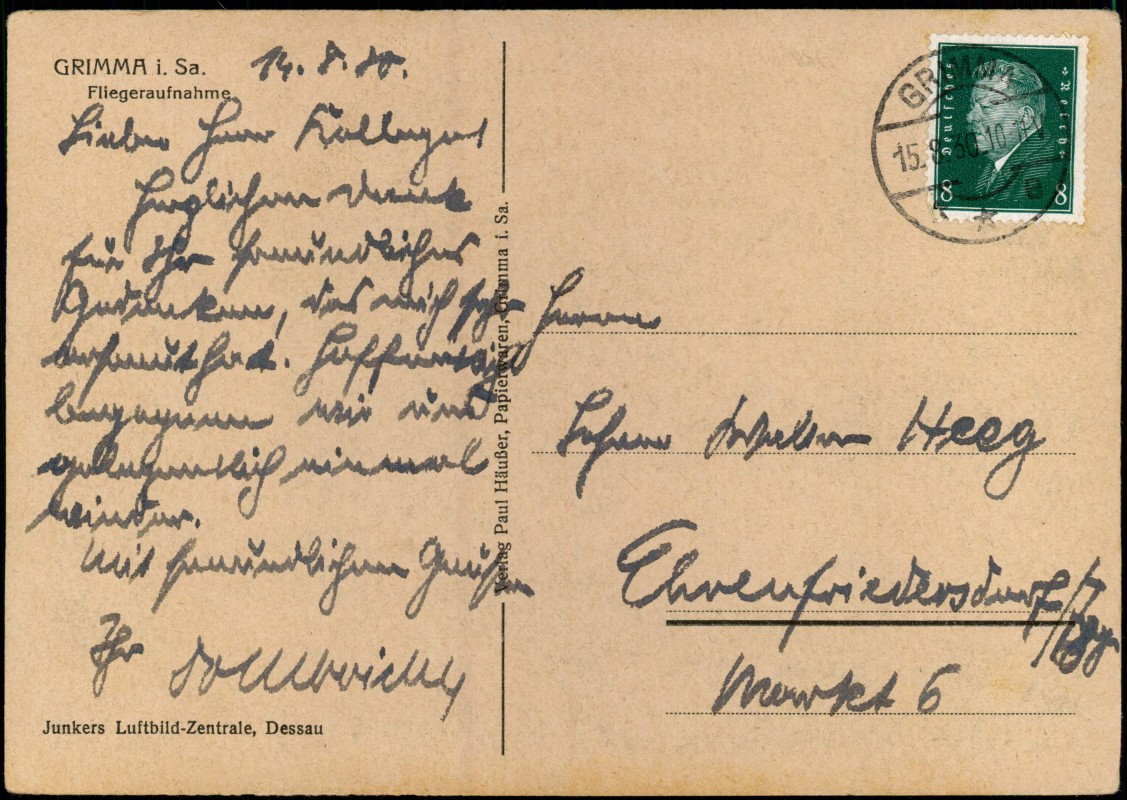 GRIMMA i. Sa.
Fliegeraufnahme
14. 8. 30.
Lieber Herr Kollege!
Herzlichen Dank
für Ihr freundliches
Gedenken, das mich sehr
erfreut hat. Hoffentlich
begegnen wir uns
gelegentlich einmal
wieder.
Mit freundlichen Grüßen
Ihr
Junkers Luftbild-Zentrale, Dessau
Verlag Paul Häußer, Papierwaren, Grimma i. Sa.
GRIMMA
15.8.30.10
Deutsches Reich
8 8
Herrn
Lehrer Walter Heeg
Ehrenfriedersdorf
Markt 6